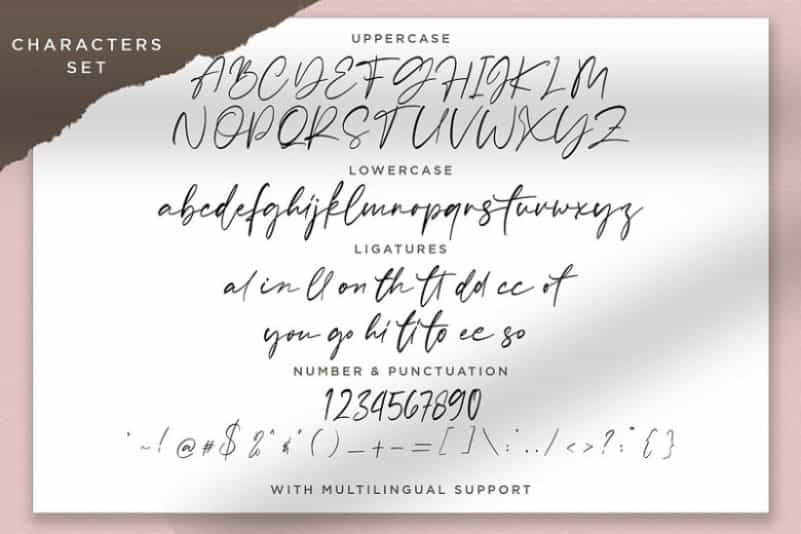 CHARACTERS
SET
UPPERCASE
ABCDEFGHIJKLM
NOPQRSTUVWXYZ
LOWERCASE
abcdefghijklmnopqrstuvwxyz
LIGATURES
al in ll on th tt dd cc ot
you go hi ti to ee so
NUMBER & PUNCTUATION
1234567890
~!@#$ & ( ) _ + - = [ ] \ : . . / < > ? : " { }
WITH MULTILINGUAL SUPPORT